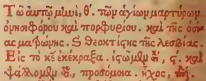 Τῷ αὐτῷ μηνὶ, θ'. τῶν ἁγίων μαρτύρων
ὀνησιφόρου καὶ πορφυρίου· καὶ τῆς ὁσίας
ματρώνης. Θεοκτίστης τῆς λεσβίας.
Εἰς τὸ κε ἐκέκραξα, ἱστῶμεν ς'. καὶ
ψάλλομεν προσόμοια. ἦχος